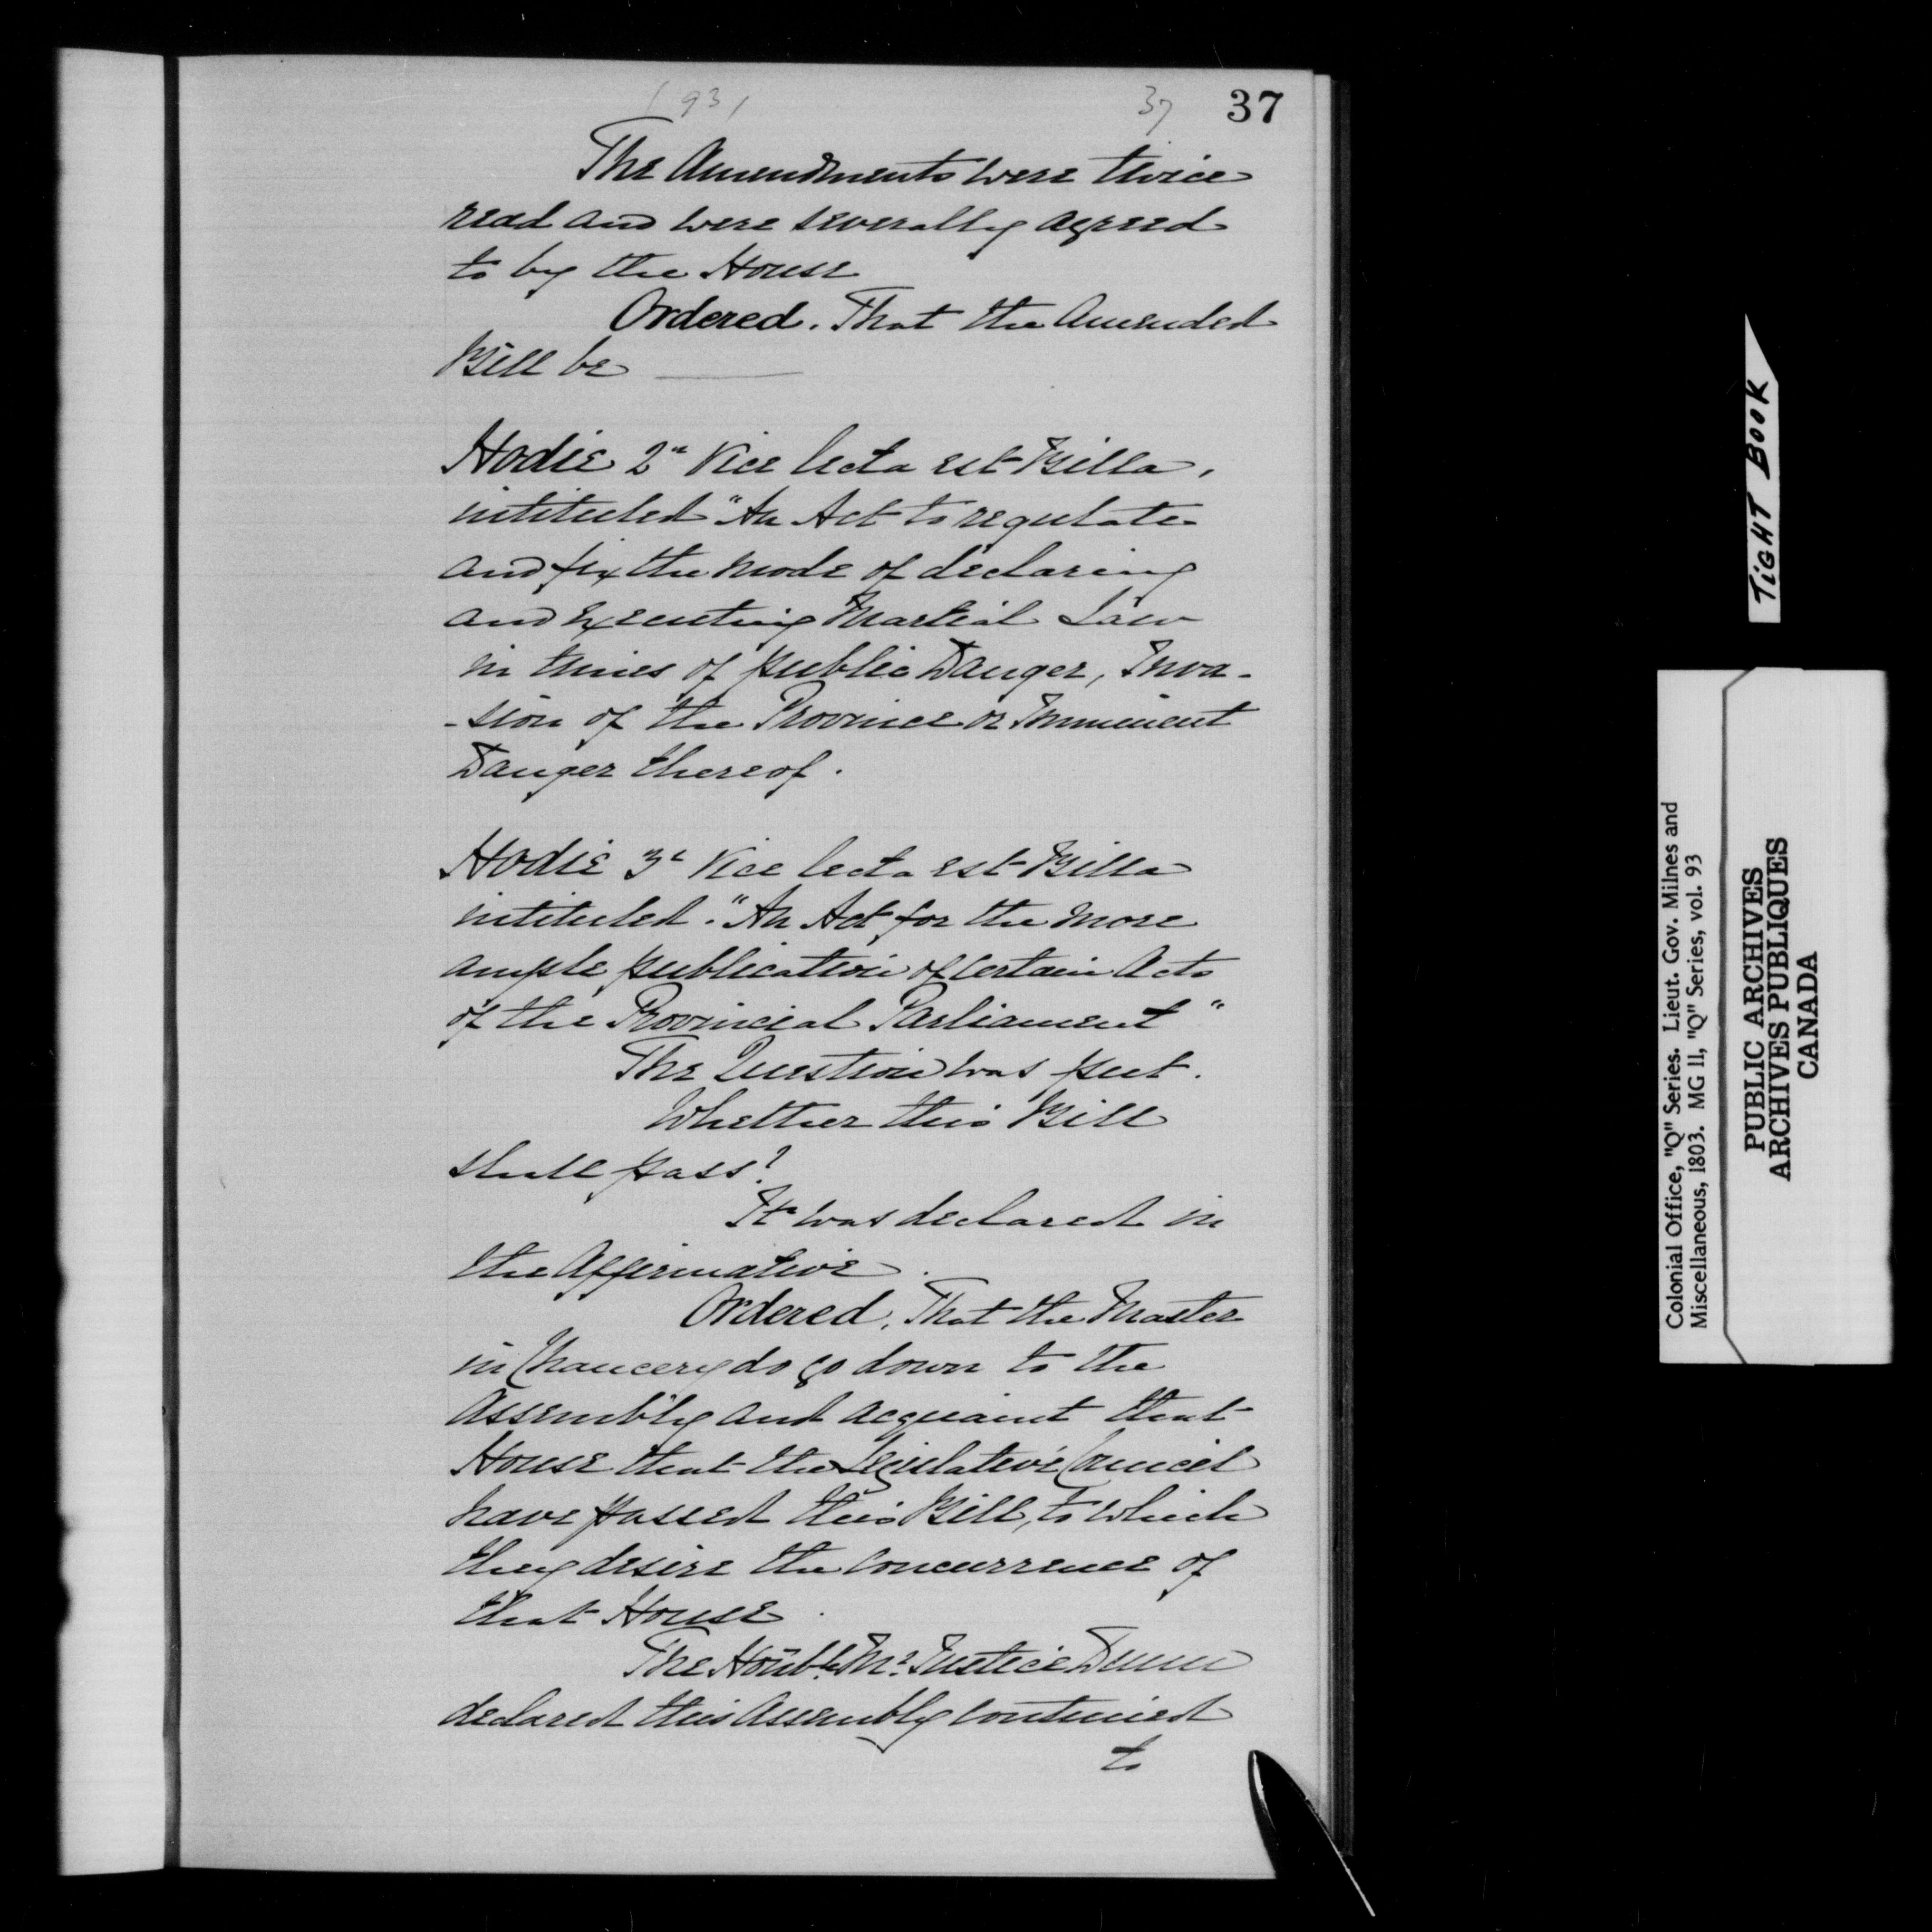 ( 93 )
37
37
The Amendments were twice
read and were severally agreed
to by the House
Ordered. That the Amended
Bill be ———
Hodie 2ª Vice lecta est Billa,
intituled "An Act to regulate
and fix the mode of declaring
and executing Martial Law
in times of public Danger, Inva-
-sion of the Province or Imminent
Danger thereof.
Hodie 3ª Vice lecta est Billa
intituled. "An Act for the more
ample publication of certain Acts
of the Provincial Parliament"
The Question was put.
Whether this Bill
shall pass?
It was declared in
the Affirmative.
Ordered, That the Master
in Chancery do go down to the
Assembly and acquaint that
House that the Legislative Council
have passed this Bill, to which
they desire the concurrence of
that House.
The Honble Mr. Justice Dunn
declared this Assembly continued
to
TIGHT BOOK
Colonial Office, "Q" Series. Lieut. Gov. Milnes and
Miscellaneous, 1803. MG 11, "Q" Series, vol. 93
PUBLIC ARCHIVES
ARCHIVES PUBLIQUES
CANADA